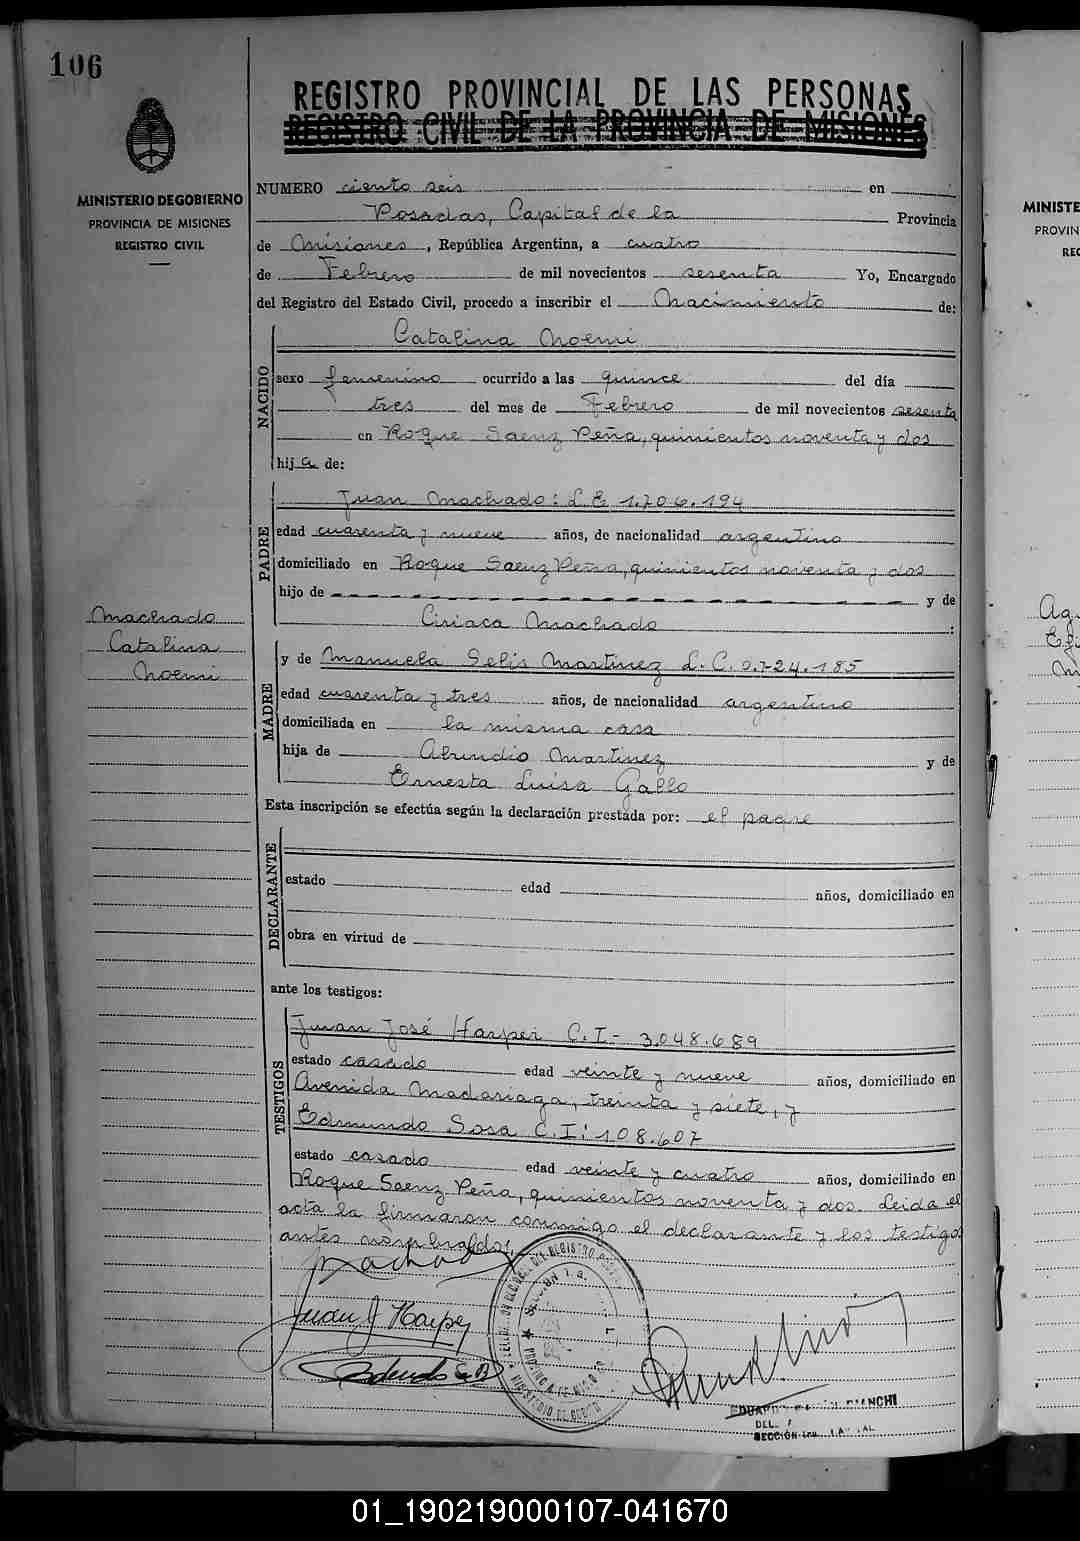 106
REGISTRO PROVINCIAL DE LAS PERSONAS
REGISTRO CIVIL DE LA PROVINCIA DE MISIONES
MINISTERIO DE GOBIERNO
PROVINCIA DE MISIONES
REGISTRO CIVIL
NUMERO ciento seis en
Posadas, Capital de la Provincia
de Misiones, República Argentina, a cuatro
de Febrero de mil novecientos sesenta Yo, Encargado
del Registro del Estado Civil, procedo a inscribir el Nacimiento de:
NACIDO
Catalina Noemi
sexo femenino ocurrido a las quince del día
tres del mes de Febrero de mil novecientos sesenta
en Roque Saenz Peña, quinientos noventa y dos
hija de:
PADRE
Juan Machado: L.E 1.206.194
edad cuarenta y nueve años, de nacionalidad argentino
domiciliado en Roque Saenz Peña, quinientos noventa y dos
hijo de y de
Ciriaca Machado :
Machado
Catalina
Noemi
MADRE
y de Manuela Selis Martinez L.C. 2.724.185
edad cuarenta y tres años, de nacionalidad argentino
domiciliada en la misma casa
hija de Martinez y de
Ernesta Luisa Gallo
Esta inscripción se efectúa según la declaración prestada por: el padre
DECLARANTE
estado edad años, domiciliado en
obra en virtud de
ante los testigos:
TESTIGOS
Juan José Harper C.I- 3.048.689
estado casado edad veinte y nueve años, domiciliado en
Avenida Madariaga, treinta y siete, y
Edmundo Sosa C.I: 108.607
estado casado edad veinte y cuatro años, domiciliado en
Roque Saenz Peña, quinientos noventa y dos. Leida el
acta la firmaron conmigo el declarante y los testigos
antes nombrados.
Machado
Juan J Harper
SECCION 1a.
EDUARDO BIANCHI
DEL.
SECCIÓN
MINISTE
PROVIN
REG
01_190219000107-041670